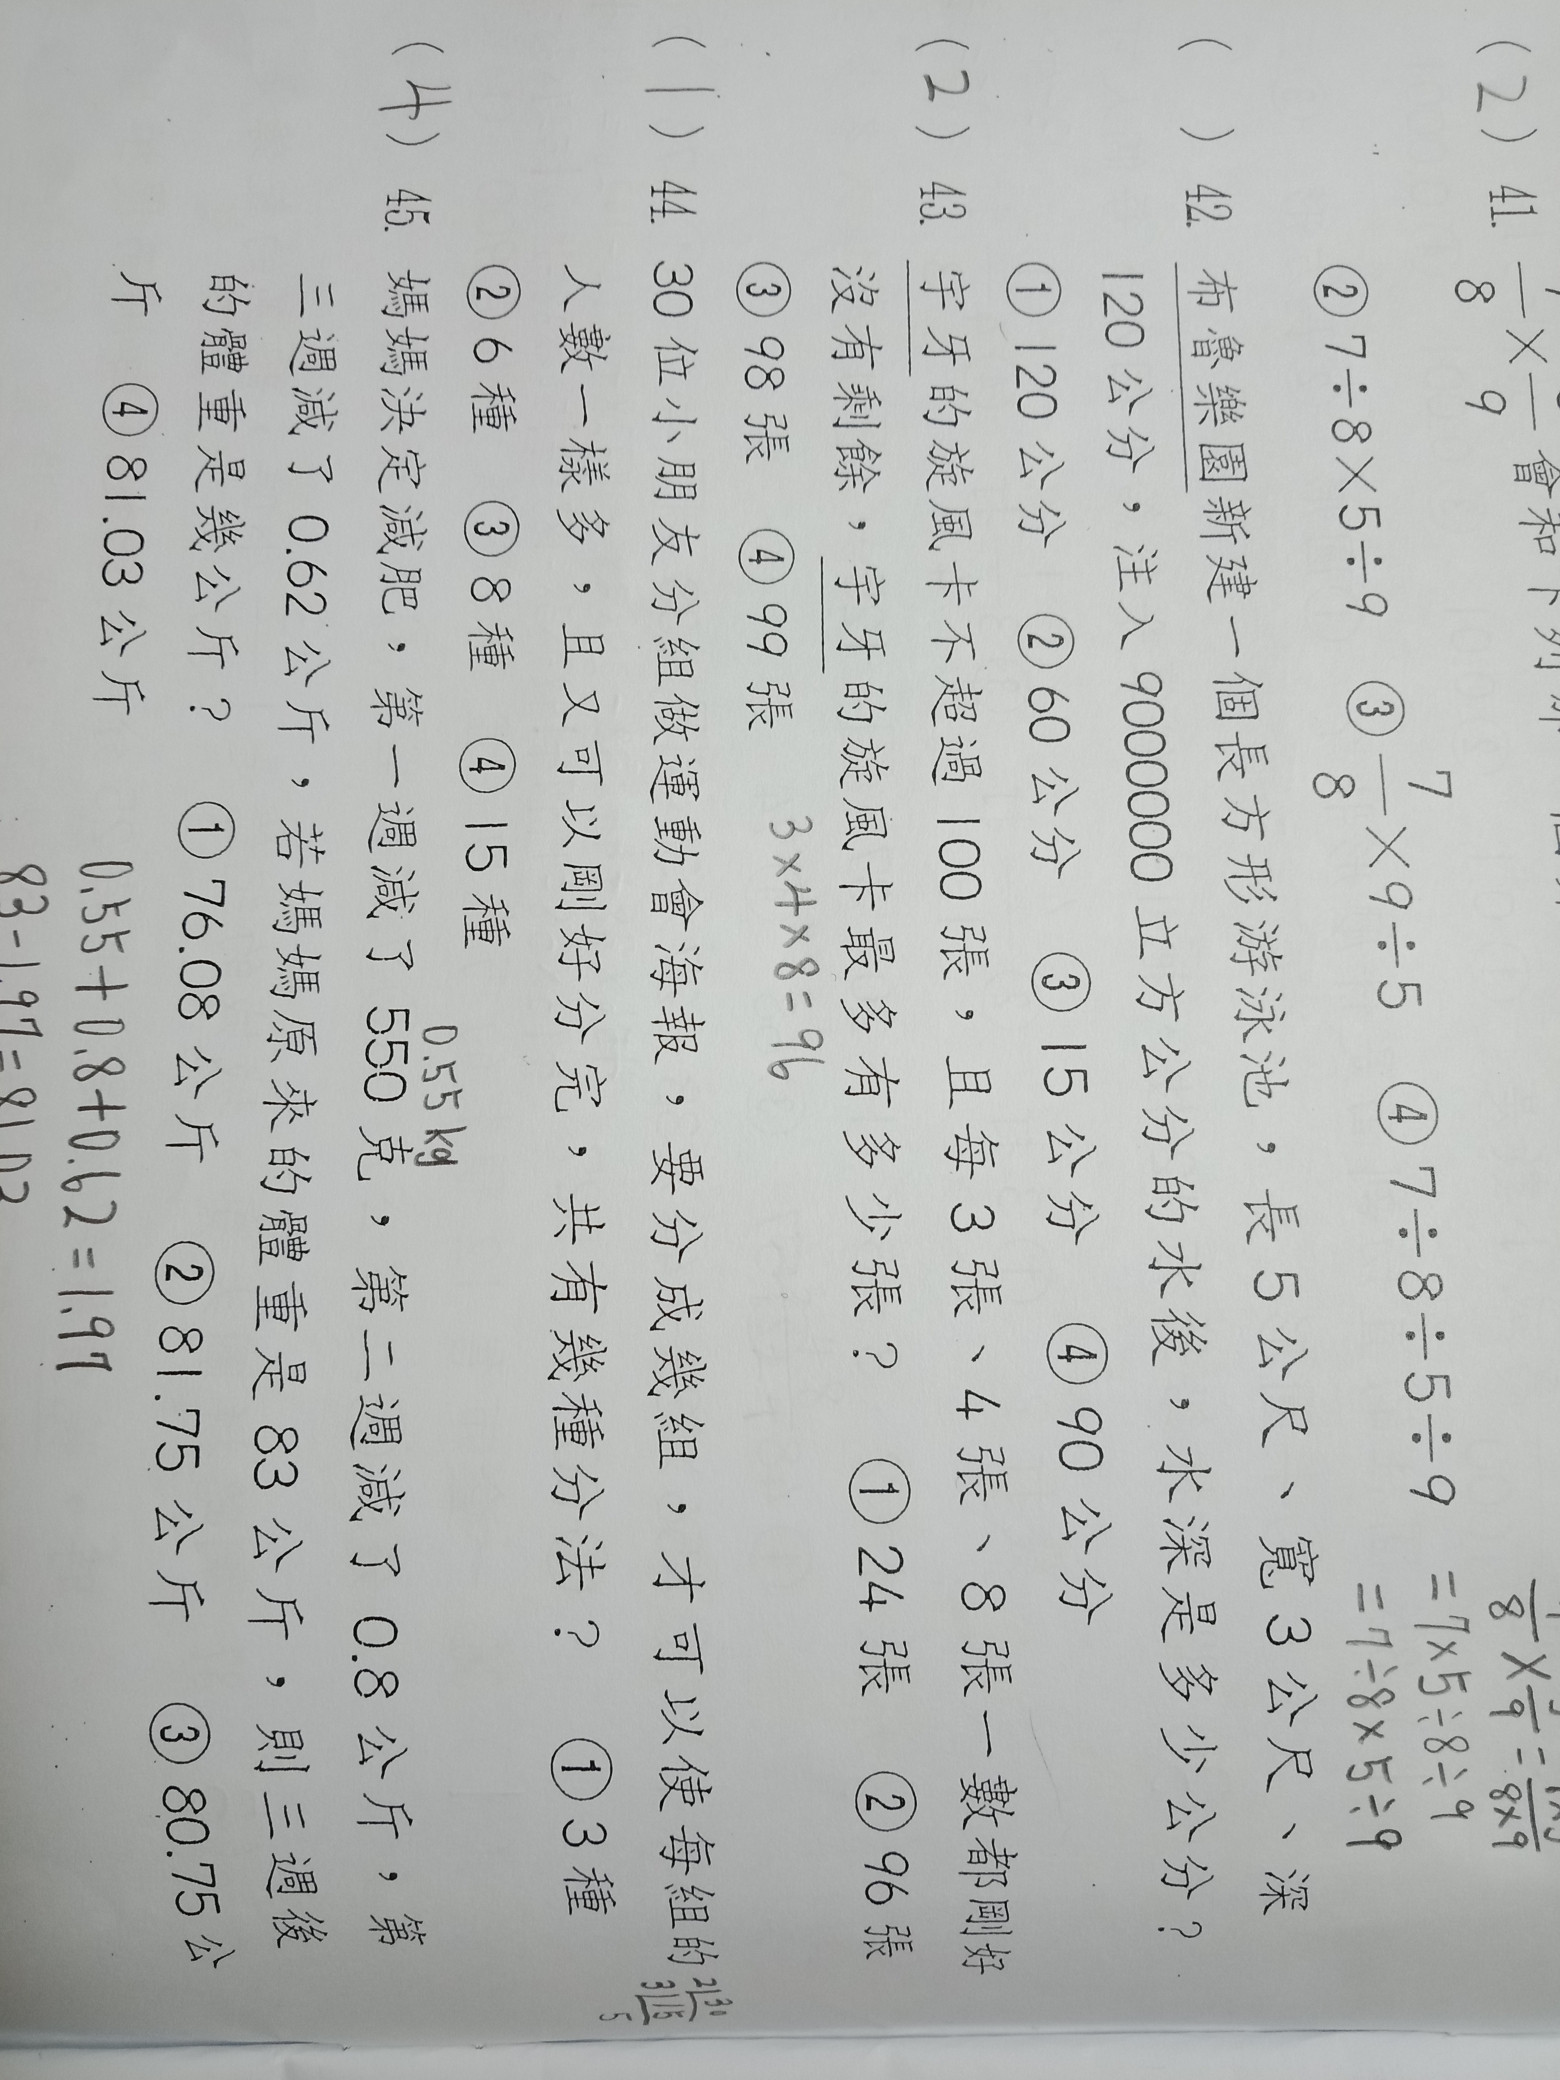 (2) 41. 8 × 9 會和下列
② 7÷8×5÷9 ③ 7/8 ×9÷5 ④ 7÷8÷5÷9
8 × 9 = 8×9
=7×5÷8÷9
=7÷8×5÷9
( ) 42. 布魯樂園新建一個長方形游泳池，長 5 公尺、寬 3 公尺、深
120 公分，注入 9000000 立方公分的水後，水深是多少公分？
① 120 公分 ② 60 公分 ③ 15 公分 ④ 90 公分
(2) 43. 宇牙的旋風卡不超過 100 張，且每 3 張、4 張、8 張一數都剛好
沒有剩餘，宇牙的旋風卡最多有多少張？ ① 24 張 ② 96 張
③ 98 張 ④ 99 張
3×4×8=96
(1) 44. 30 位小朋友分組做運動會海報，要分成幾組，才可以使每組的
人數一樣多，且又可以剛好分完，共有幾種分法？ ① 3 種
② 6 種 ③ 8 種 ④ 15 種
2|30
3|15
5
0.55kg
(4) 45. 媽媽決定減肥，第一週減了 550 克，第二週減了 0.8 公斤，第
三週減了 0.62 公斤，若媽媽原來的體重是 83 公斤，則三週後
的體重是幾公斤？ ① 76.08 公斤 ② 81.75 公斤 ③ 80.75 公
斤 ④ 81.03 公斤
0.55+0.8+0.62=1.97
83-1.97=81.03